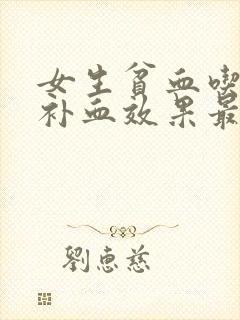 女生贫血喫
补血效果最
劉惠慈